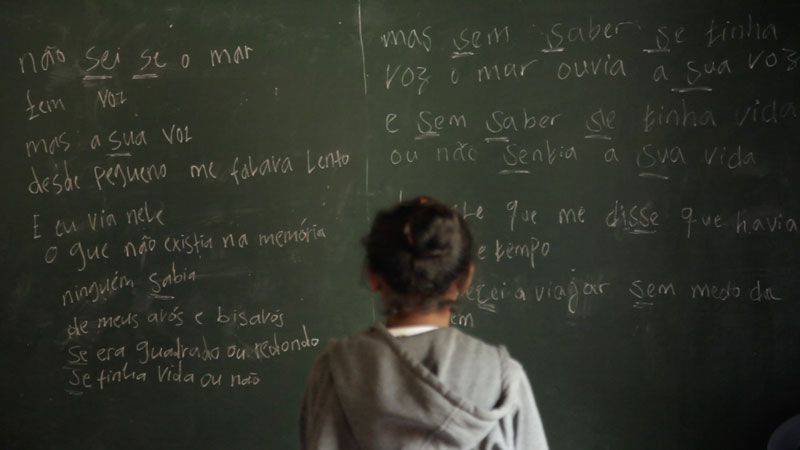 não sei se o mar
tem voz
mas a sua voz
desde pequeno me falava lento
E eu via nele
o que não existia na memória
ninguém sabia
de meus avós e bisavós
se era quadrado ou redondo
se tinha vida ou não
mas sem saber se tinha
voz o mar ouvia a sua voz
e sem saber se tinha vida
ou não sentia a sua vida
que me disse que havia
e tempo
a viajar sem medo da
em